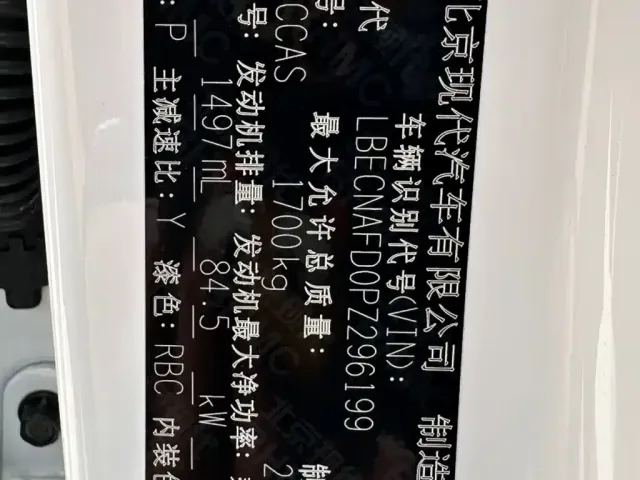 北京现代汽车有限公司 制造
车辆识别代号(VIN):
LBECNAFD0PZ296199
代
号: 最大允许总质量: 制
CCAS 1700kg 2
号: 发动机排量: 发动机最大净功率:
1497mL 84.5 kW
: P 主减速比: Y 漆色: RBC 内装色